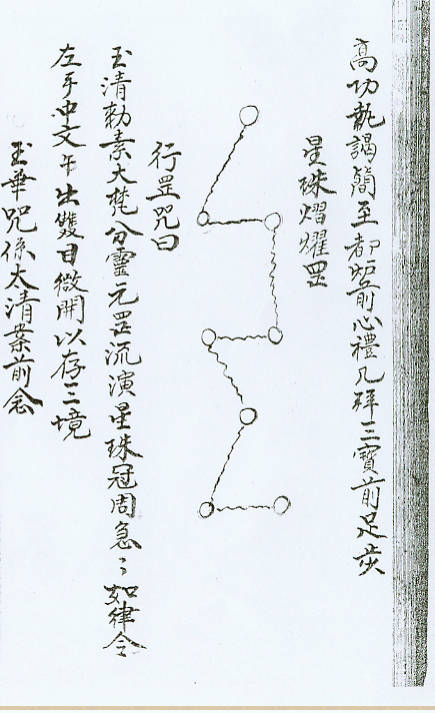 高功執謁簡至都炉前心禮九拜三寶前足步
星珠熠耀罡
行罡咒曰
玉清勅素大梵分靈元罡流演星珠冠周急〻如律令
左手冲文午出雙目微開以存三境
玉華咒係太清案前念